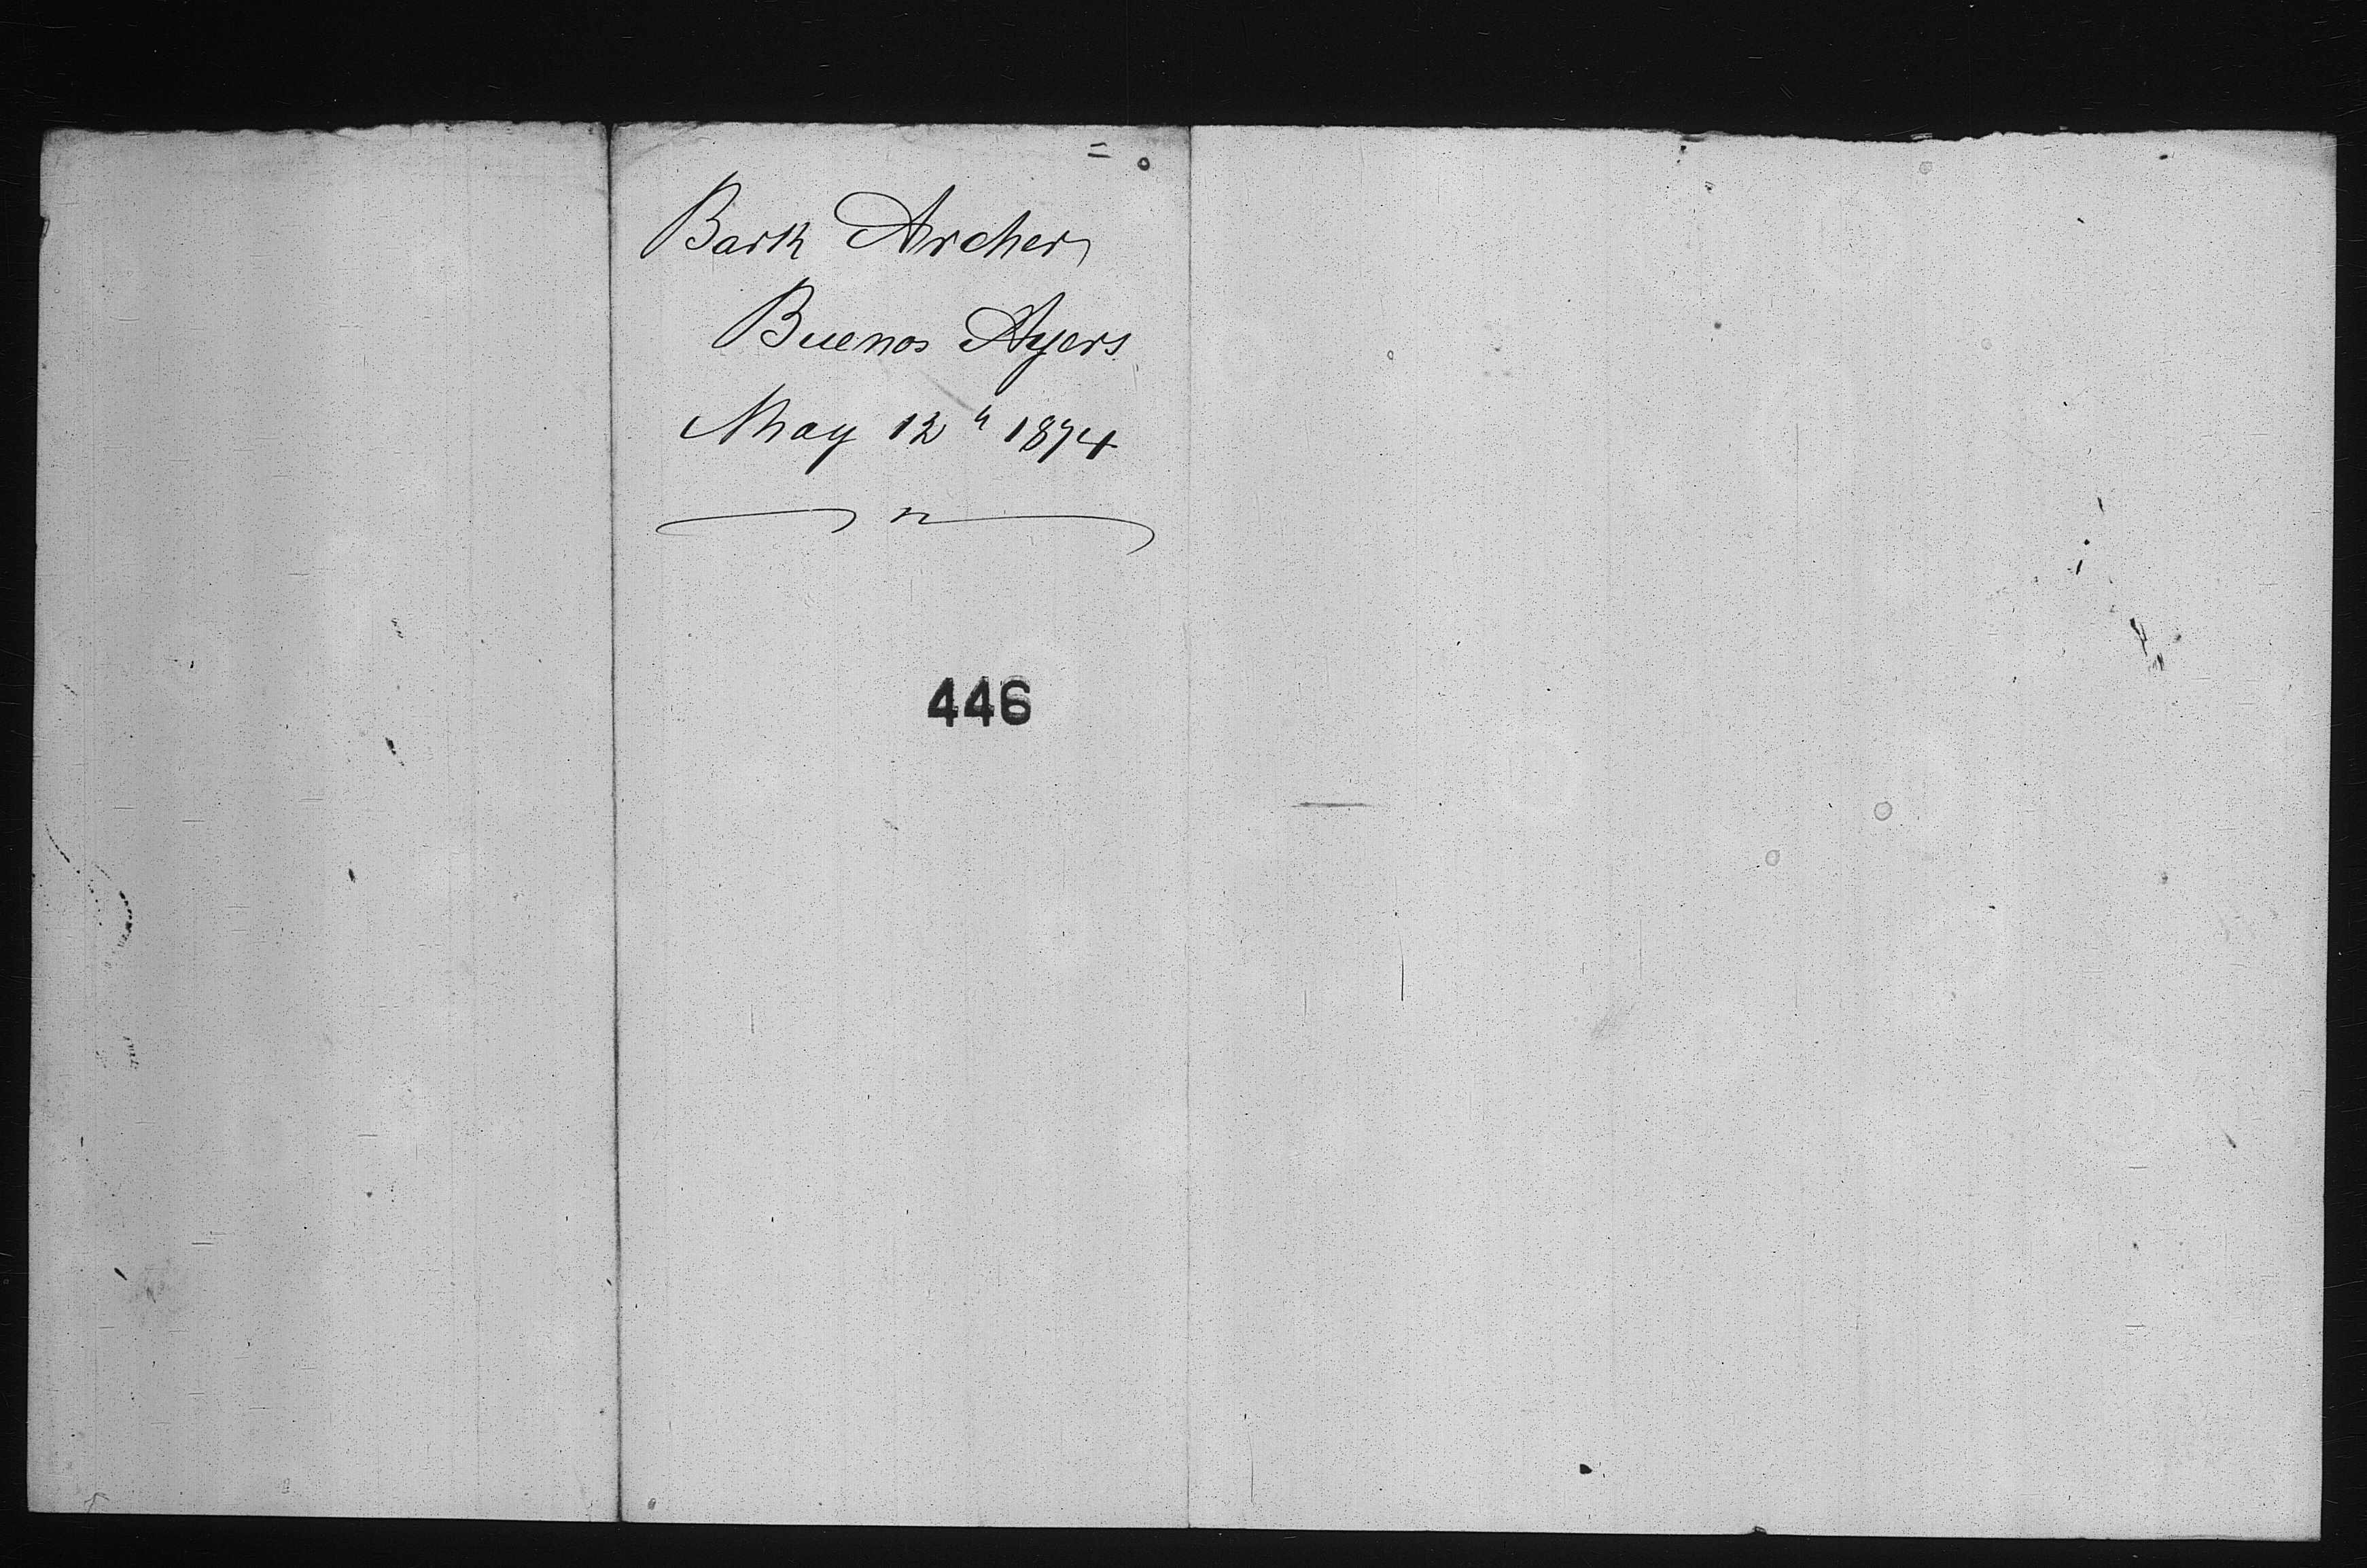 Bark Archer
Buenos Ayers
May 12th 1874
446